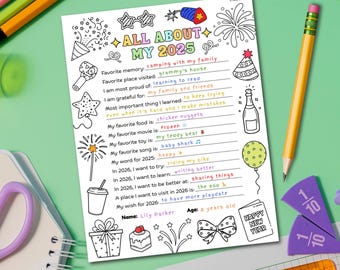 ALL ABOUT
MY 2025
Favorite memory: camping with my family
Favorite place visited: grammy's house
I am most proud of: learning to read
I am grateful for: my family and friends
Most important thing I learned: to keep trying
even when it's hard and I make mistakes
My favorite food is: chicken nuggets
My favorite movie is: frozen
My favorite toy is: my teddy bear
My favorite song is: baby shark
My word for 2025: happy
In 2026, I want to try: riding my bike
In 2026, I want to learn: writing better
In 2026, I want to be better at: sharing things
A place I want to visit in 2026 is: the zoo
My wish for 2026: to have more playdate
Name: Lily Parker Age: 6 years old
HAPPY
NEW
YEAR
1/10
1/10